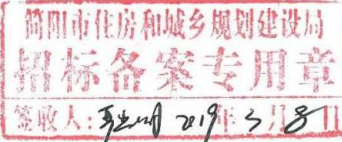 简阳市住房和城乡规划建设局
招标备案专用章
签收人: 2019年3月8日